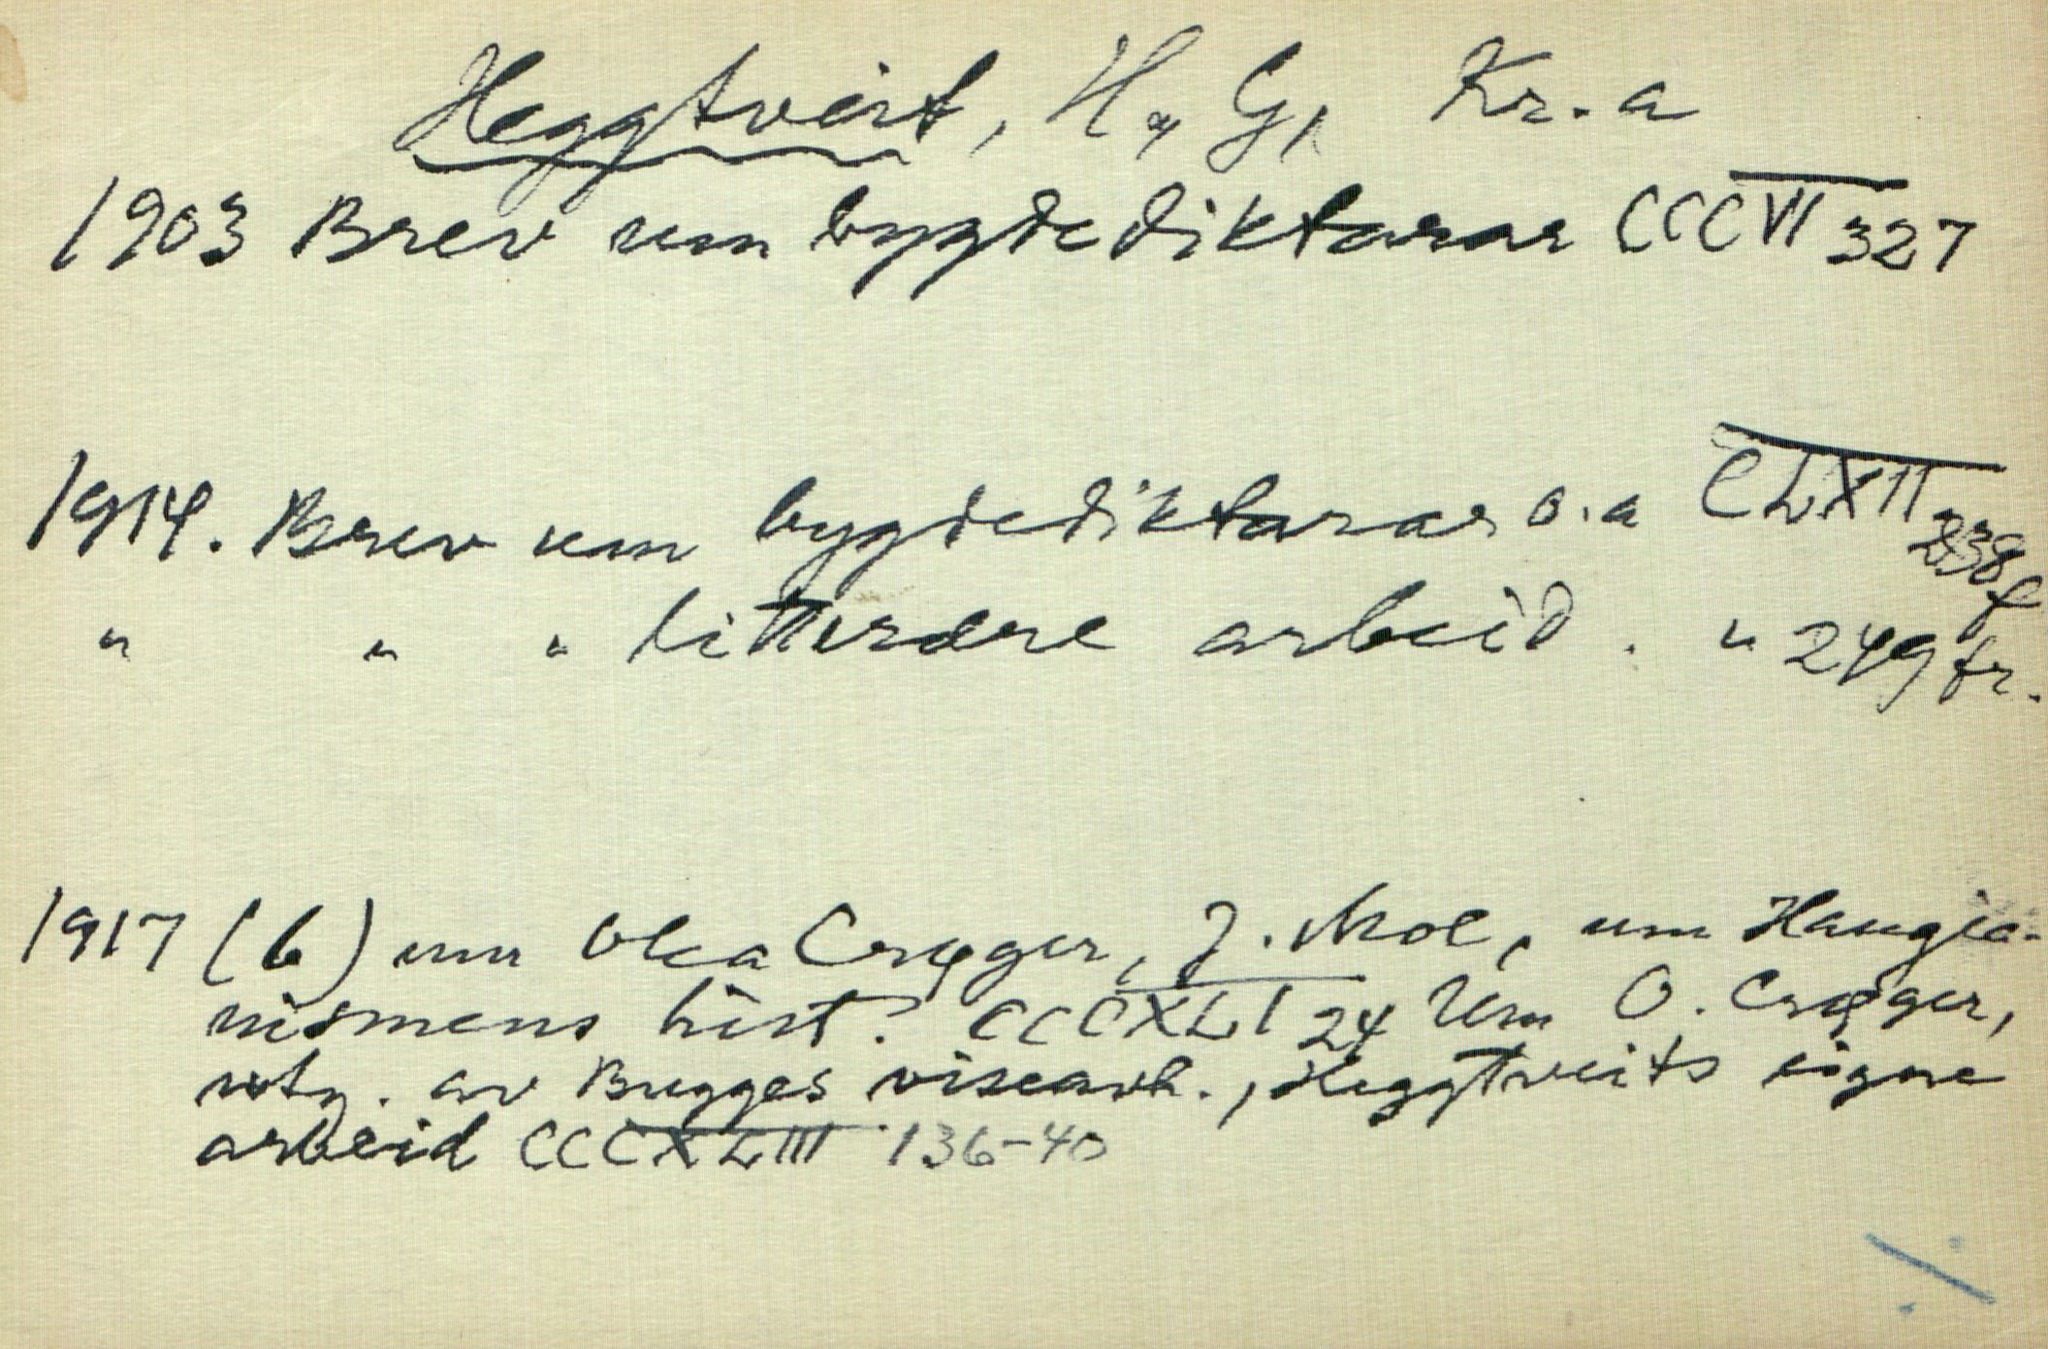 Heggtveit, H. G., Kr.a
1903 Brev um bygdediktarar CCCVII 327
1914. Brev um bygdediktarar o.a CLXII 238 f
" " " litterære arbeid. " 249 fr.
1917 (b) um Olea Crøger, J. Moe, um Haugia-
nismens hist. CCCXLI 24 Um O. Crøger,
utg. av Bugges visearb., Heggtveits eigne
arbeid CCCXLIII 136-40